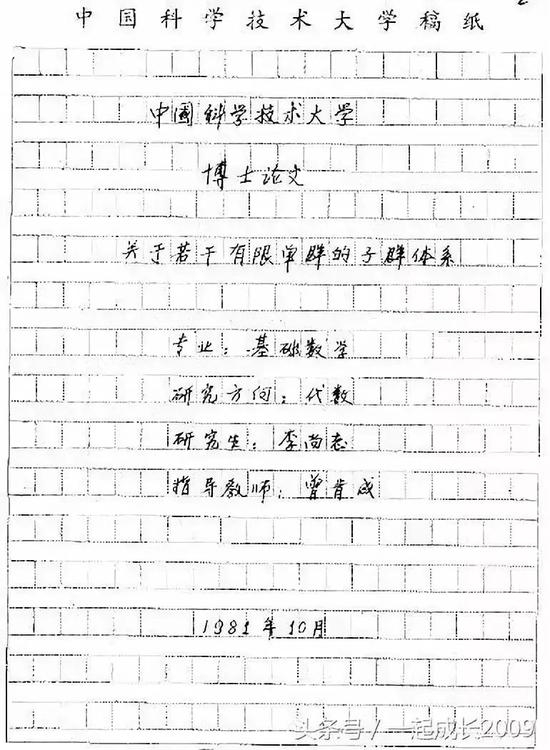 中国科学技术大学稿纸
中国科学技术大学
博士论文
关于若干有限单群的子群体系
专业：基础数学
研究方向：代数
研究生：李尚志
指导教师：曾肯成
1981年10月
头条号/一起成长2009